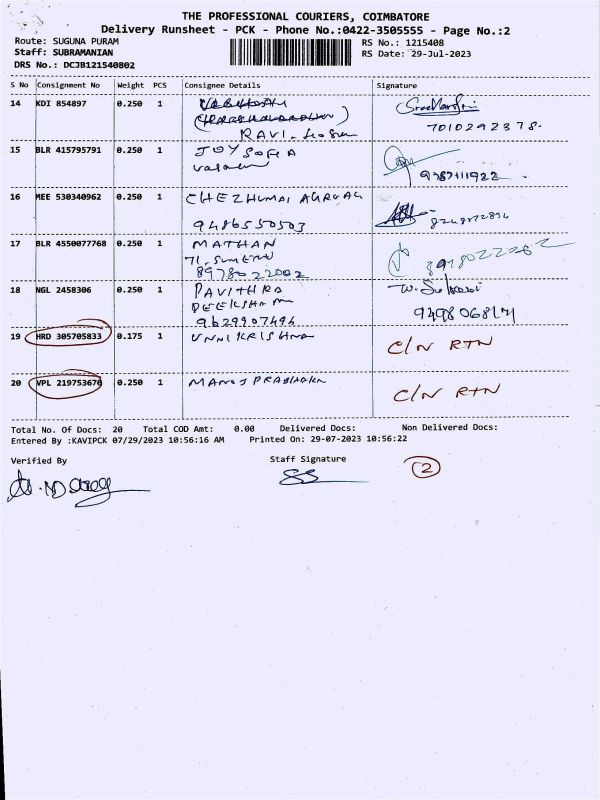 THE PROFESSIONAL COURIERS, COIMBATORE
Delivery Runsheet - PCK - Phone No.:0422-3505555 - Page No.:2
Route: SUGUNA PURAM
Staff: SUBRAMANIAN
DRS No.: DCJB121540802
RS No.: 1215408
RS Date: 29-Jul-2023
S No Consignment No Weight PCS Consignee Details Signature
14 KDI 854897 0.250 1
RAVI
7010292378.
15 BLR 415795791 0.250 1 JOY SOFIA
9787111922
16 MEE 530340962 0.250 1 CHEZHUMAI
9486550503
17 BLR 4550077768 0.250 1 MATHAN
71,
8978022002
18 NGL 2458306 0.250 1 PAVITHRA
DEEKSHA
9629907494
19 HRD 305705833 0.175 1 UNNIKRISHNA C/N RTN
20 VPL 219753670 0.250 1 MANOJ PRABHAKAR C/N RTN
Total No. Of Docs: 20 Total COD Amt: 0.00 Delivered Docs: Non Delivered Docs:
Entered By :KAVIPCK 07/29/2023 10:56:16 AM Printed On: 29-07-2023 10:56:22
Verified By Staff Signature
2